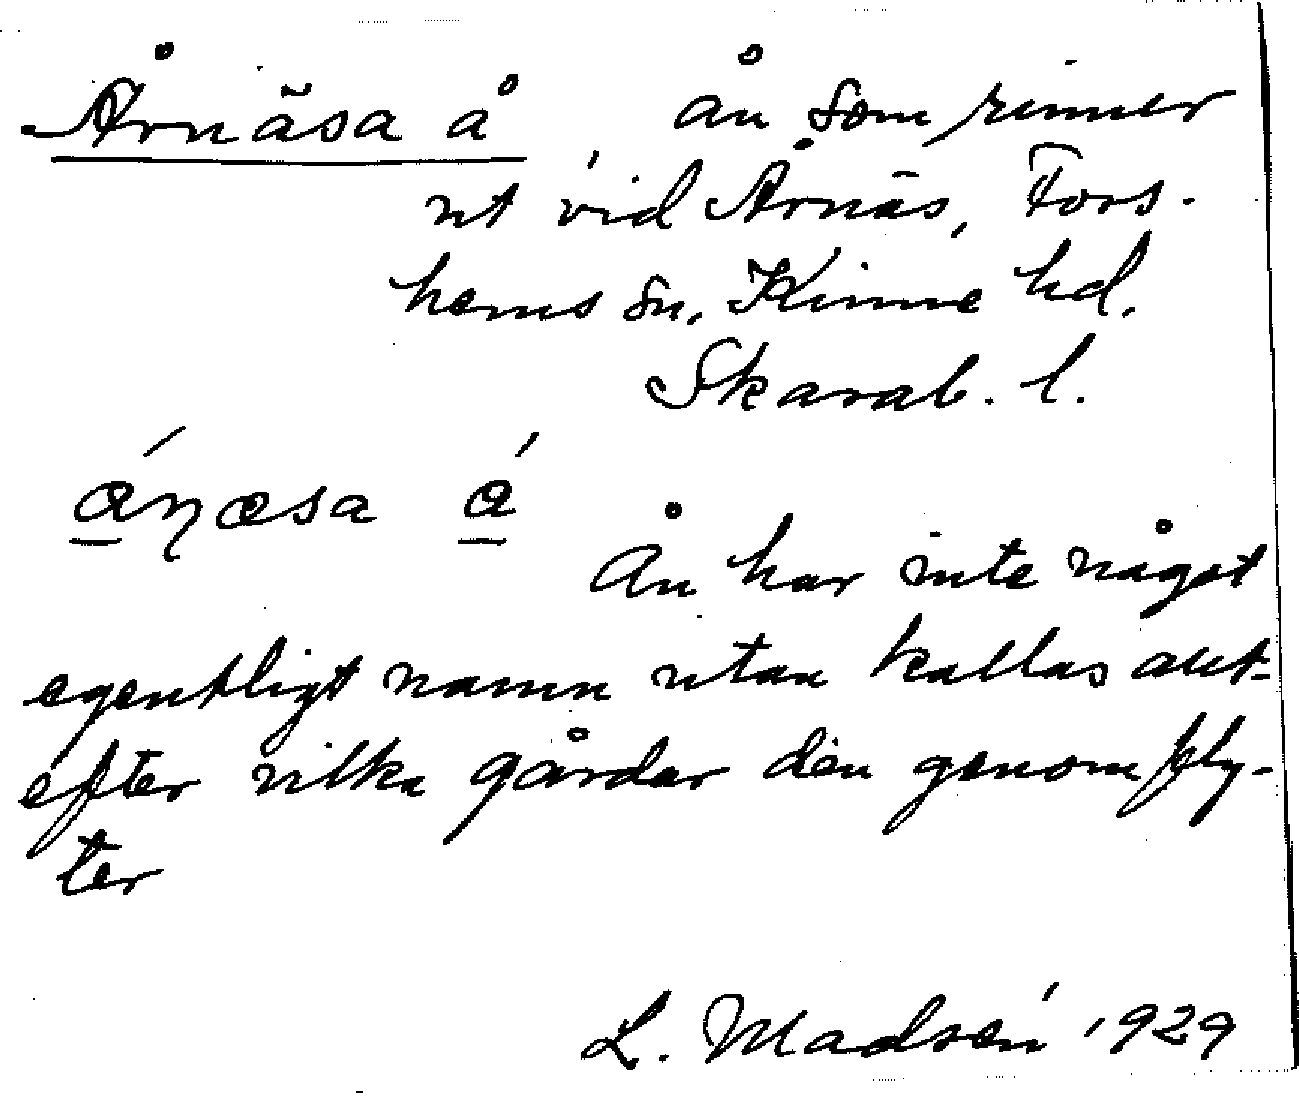 Årnäsa å, ån som rinner
ut vid Årnäs, Fors-
hems sn, Kinne hd.
Skarab. l.
Ån har inte något
egentligt namn utan kallas allt-
efter vilka gårdar den genomfly-
ter
L. Madsén 1929